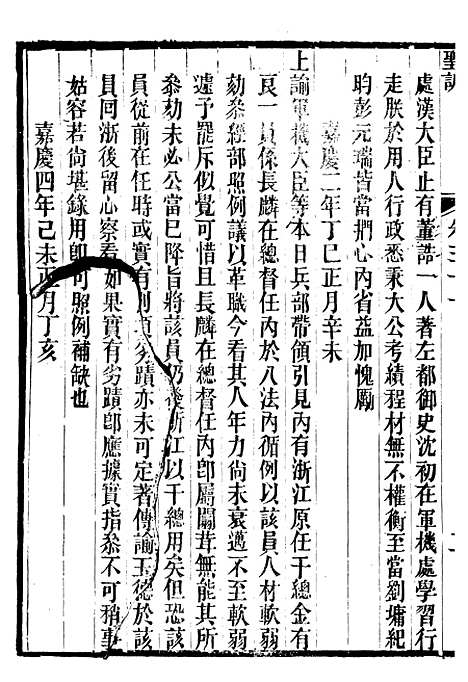 聖訓
處漢大臣止有董誥一人著左都御史沈初在軍機處學習行
走朕於用人行政悉秉大公考績程材無不權衡至當劉墉紀
昀彭元瑞皆當捫心內省益加愧勵
嘉慶二年丁巳正月辛未
上諭軍機大臣等本日兵部帶領引見內有浙江原任千總金有
良一員係長麟在總督任內於八法內循例以該員人材軟弱
劾叅經部照例議以革職今看其人年力尚未衰邁不至軟弱
遽予罷斥似覺可惜且長麟在總督任內卽屬闒茸無能其所
叅劾未必公當已降旨將該員仍發浙江以千總用矣但恐該
員從前在任時或實有別項劣蹟亦未可定著傳諭玉德於該
員回浙後留心察看如果實有劣蹟卽應據實指叅不可稍事
姑容若尚堪錄用卽可照例補缺也
嘉慶四年己未正月丁亥